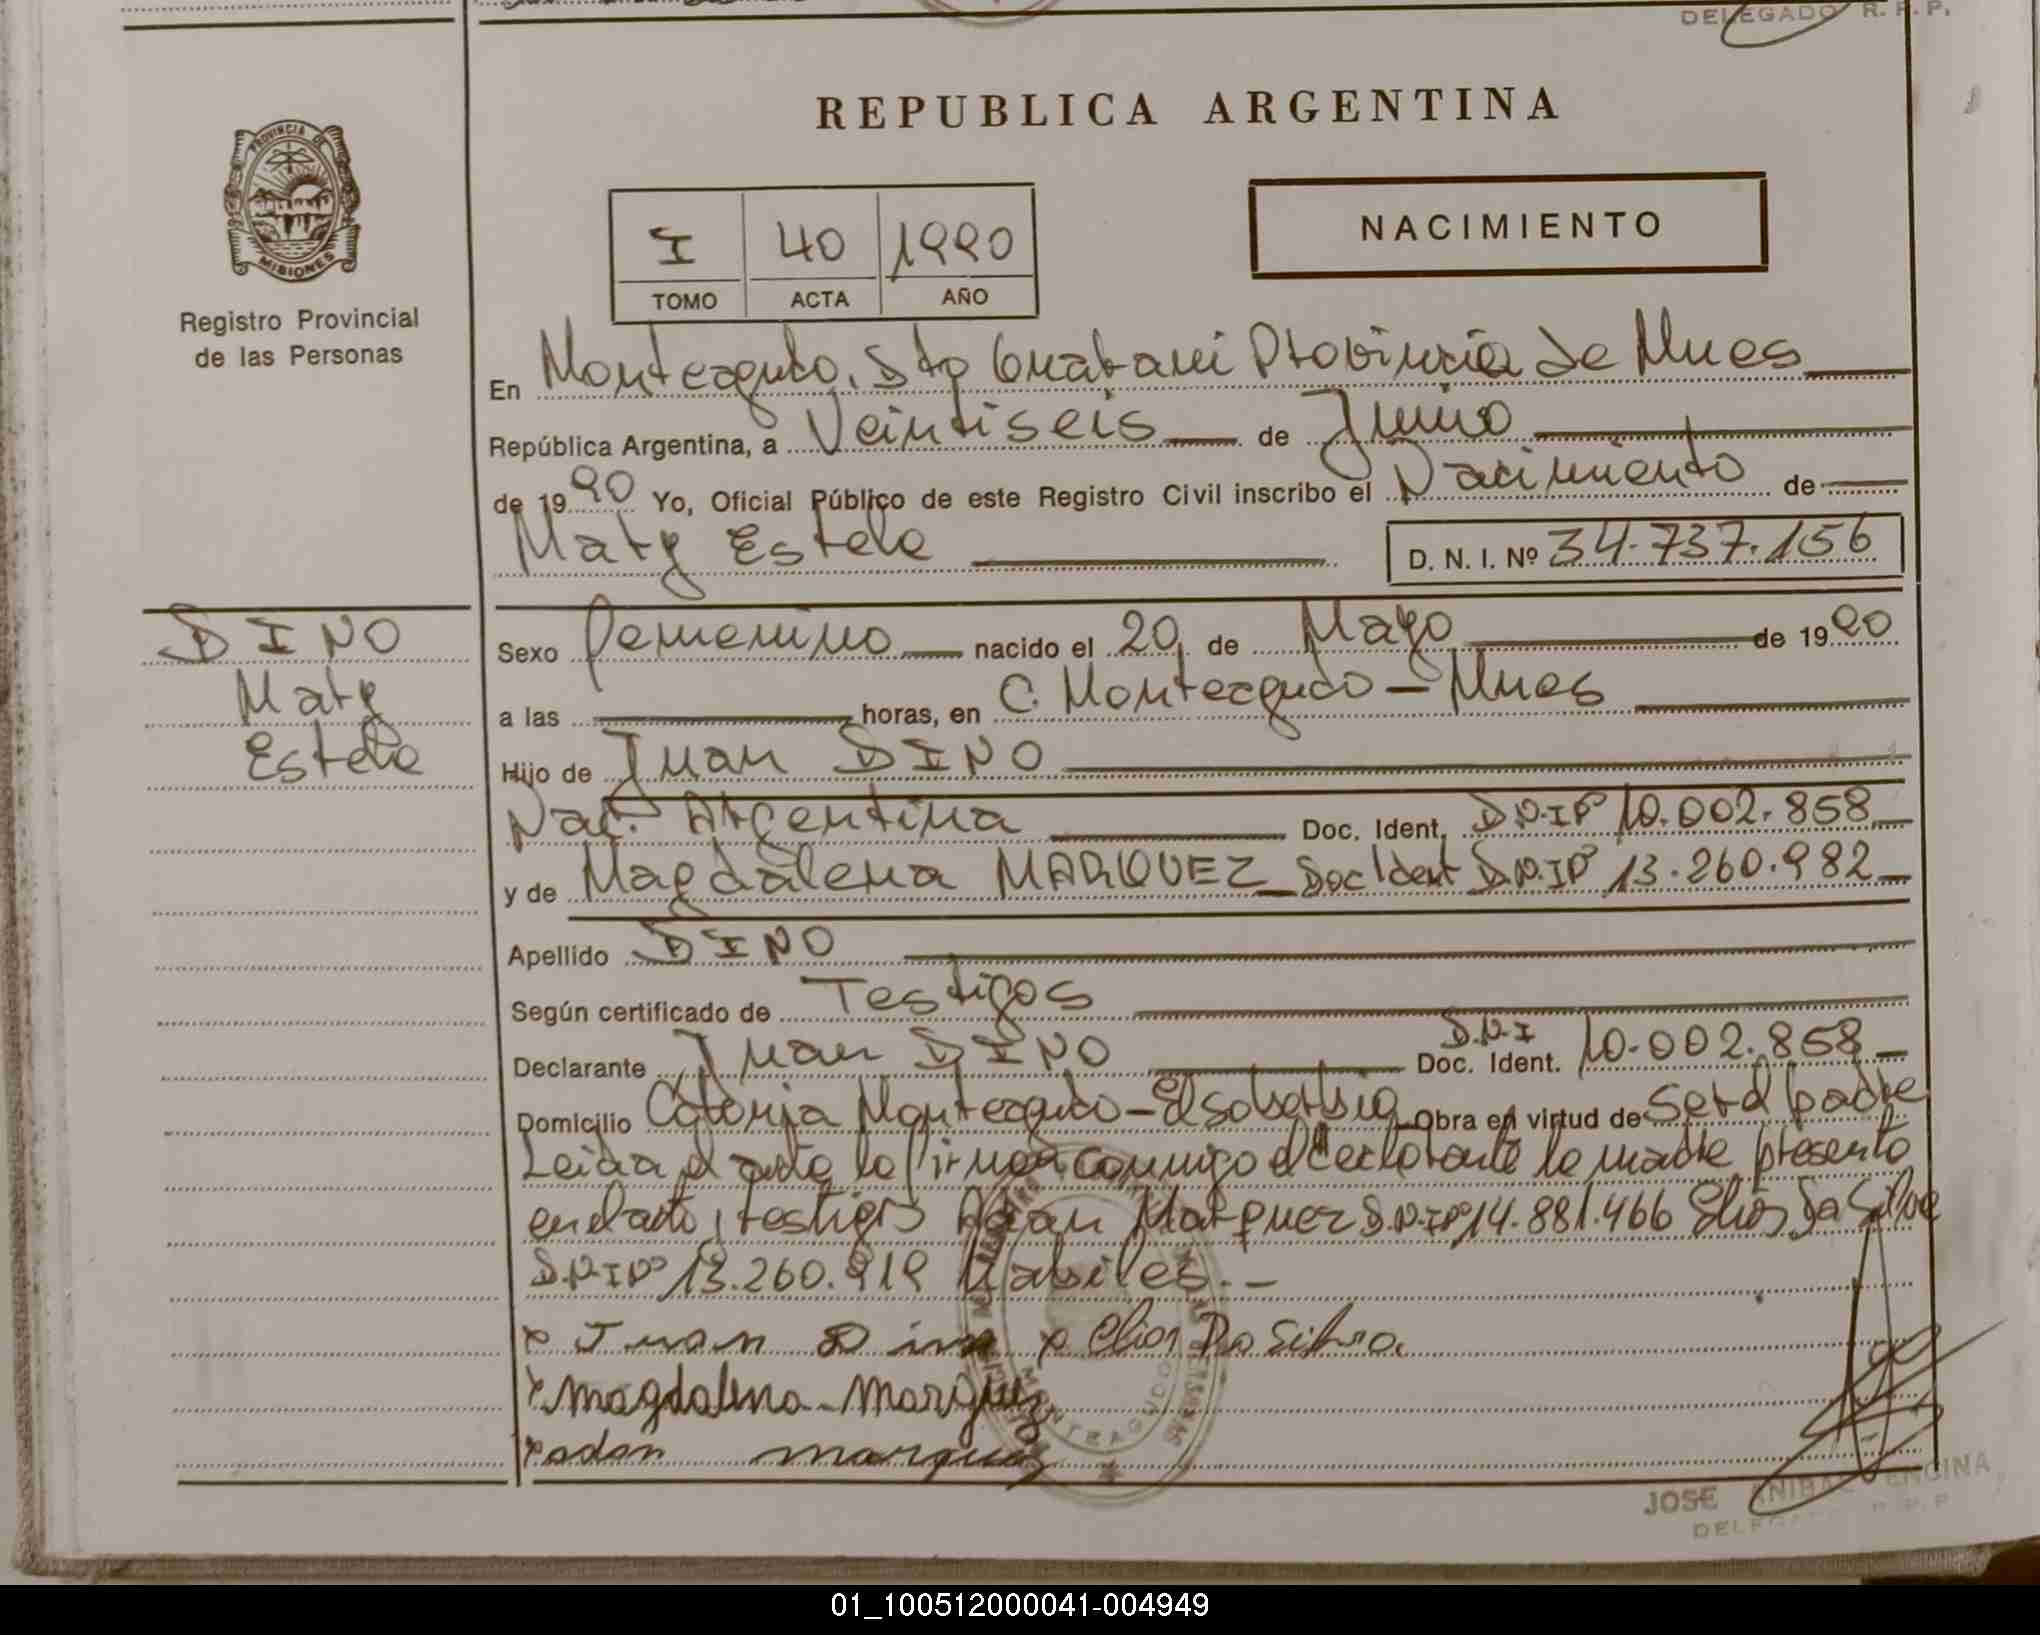 DELEGADO R. P. P.
PROVINCIA DE
MISIONES
Registro Provincial
de las Personas
REPUBLICA ARGENTINA
I 40 1990
TOMO ACTA AÑO
NACIMIENTO
En Monteagudo, Dto Guarani Provincia de Mnes
República Argentina, a Veintiseis de Junio
de 1990 Yo, Oficial Público de este Registro Civil inscribo el Nacimiento de
Mary Estela D. N. I. Nº 34.737.156
DINO
Mary
Estela
Sexo femenino nacido el 20 de Mayo de 1990
a las horas, en C. Monteagudo - Mnes
Hijo de Juan DINO
Nac. Argentina Doc. Ident. D.N.I Nº 10.002.858
y de Magdalena MARQUEZ Doc Ident D.N.I Nº 13.260.982
Apellido DINO
Según certificado de Testigos
Declarante Juan DINO Doc. Ident. D.N.I 10.002.858
Domicilio Colonia Monteagudo - El soberbio Obra en virtud de ser el padre
Leida el acta la firman conmigo el declarante la madre presente
en el acto, testigos Adan Marquez D.N.I Nº 14.881.466 Elios Da Silva
D.N.I Nº 13.260.919 habiles. -
x Juan Dino x Elios Da Silva.
x magdalena - Marquez
x adan marquez
MONTEAGUDO
JOSE ANIBAL ENCINA
DELEGADO R. P. P
01_100512000041-004949